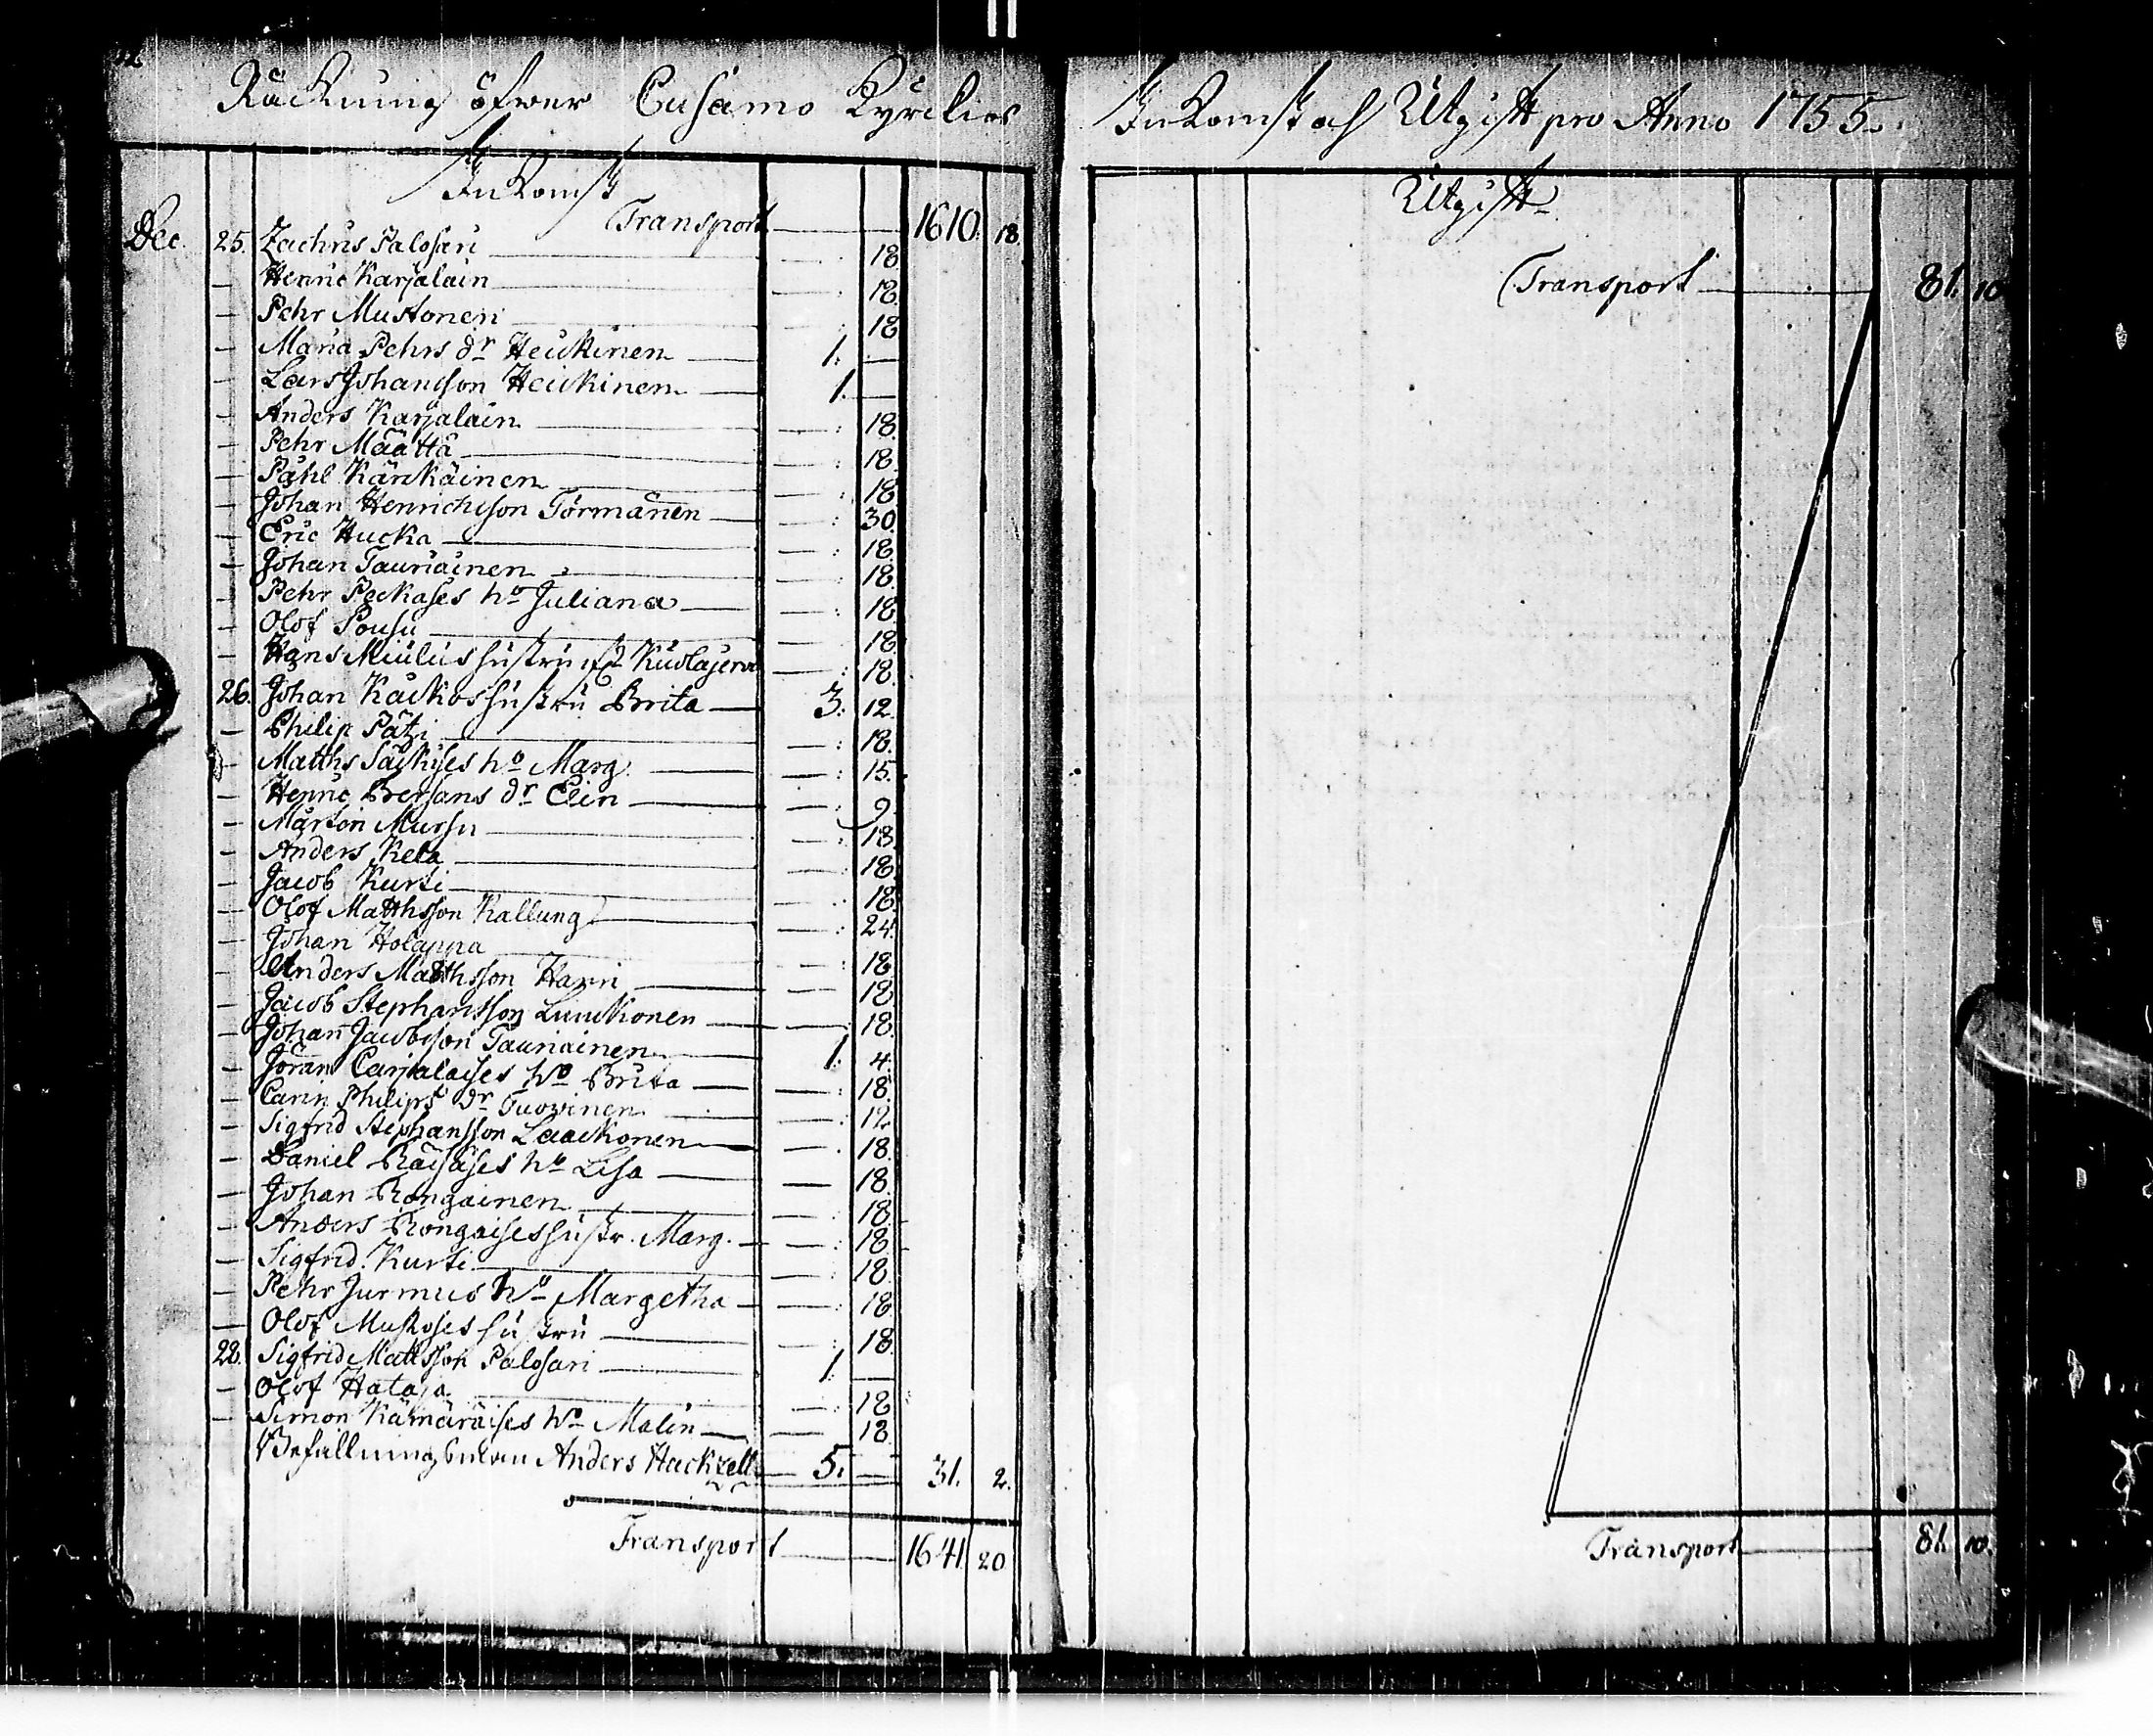 Räckning öfwer Cusamo Kyrckios
Inkomst
Transport 1610. 18.
Dec. 25. Zachris Palosari — : 18.
— Henric Karjalain — : 18.
— Pehr Mustonen — : 18
— Maria Pehrs dr Heickinen 1. —
— Lars Johansson Heickinen 1. —
— Anders Karjalain — : 18.
— Pehr Määttä — : 18.
— Påhl Känkäinen — : 18.
— Johan Henrichsson Törmänen — : 30.
— Eric Hucka — : 18.
— Johan Tauriainen — : 18.
— Pehr Peckases ho Juliana — : 18.
— Olof Pousu — : 18.
— Hans Mulus hustru Kuolajerv — : 18.
26. Johan Kaickos hustru Brita 3. 12.
— Philip Pätzi — : 18.
— Matths Säckises ho Marg. — : 15.
— Henric Bersans dr Elin — : 9.
— Mårten Mursu — : 18.
— Anders Kela — : 18.
— Jacob Kurti — : 18.
— Olof Matthsson Kallung — : 24.
— Johan Holappa — : 18.
— Anders Matthsson Harri — 18.
— Jacob Stephansson Luuckonen — : 18.
— Johan Jacobsson Tauriainen 1. 4.
— Jöran Carjalaises ho Brita — : 18.
— Carin Philips dr Tuovinen — : 12
— Sigfrid Stephansson Laackonen — . 18.
— Daniel Räisäses ho Lisa — 18.
— Johan Rongainen — . 18.
— Anders Rongaises hustr. Marg. — : 18.
— Sigfrid Kurti — : 18.
— Pehr Jurmus ho Margetha — : 18
— Olof Mustoses hustru — : 18.
28. Sigfrid Mattsson Palosari 1. —
— Olof Hataja — : 18
— Simon Kämäräises ho Malin — 18.
Befallningsman Anders Hackzell 5. — 31. 2.
Transport 1641. 20
Inkomst och Utgift pro Anno 1755.
Utgift
Transport 81. 10
Transport 81. 10.